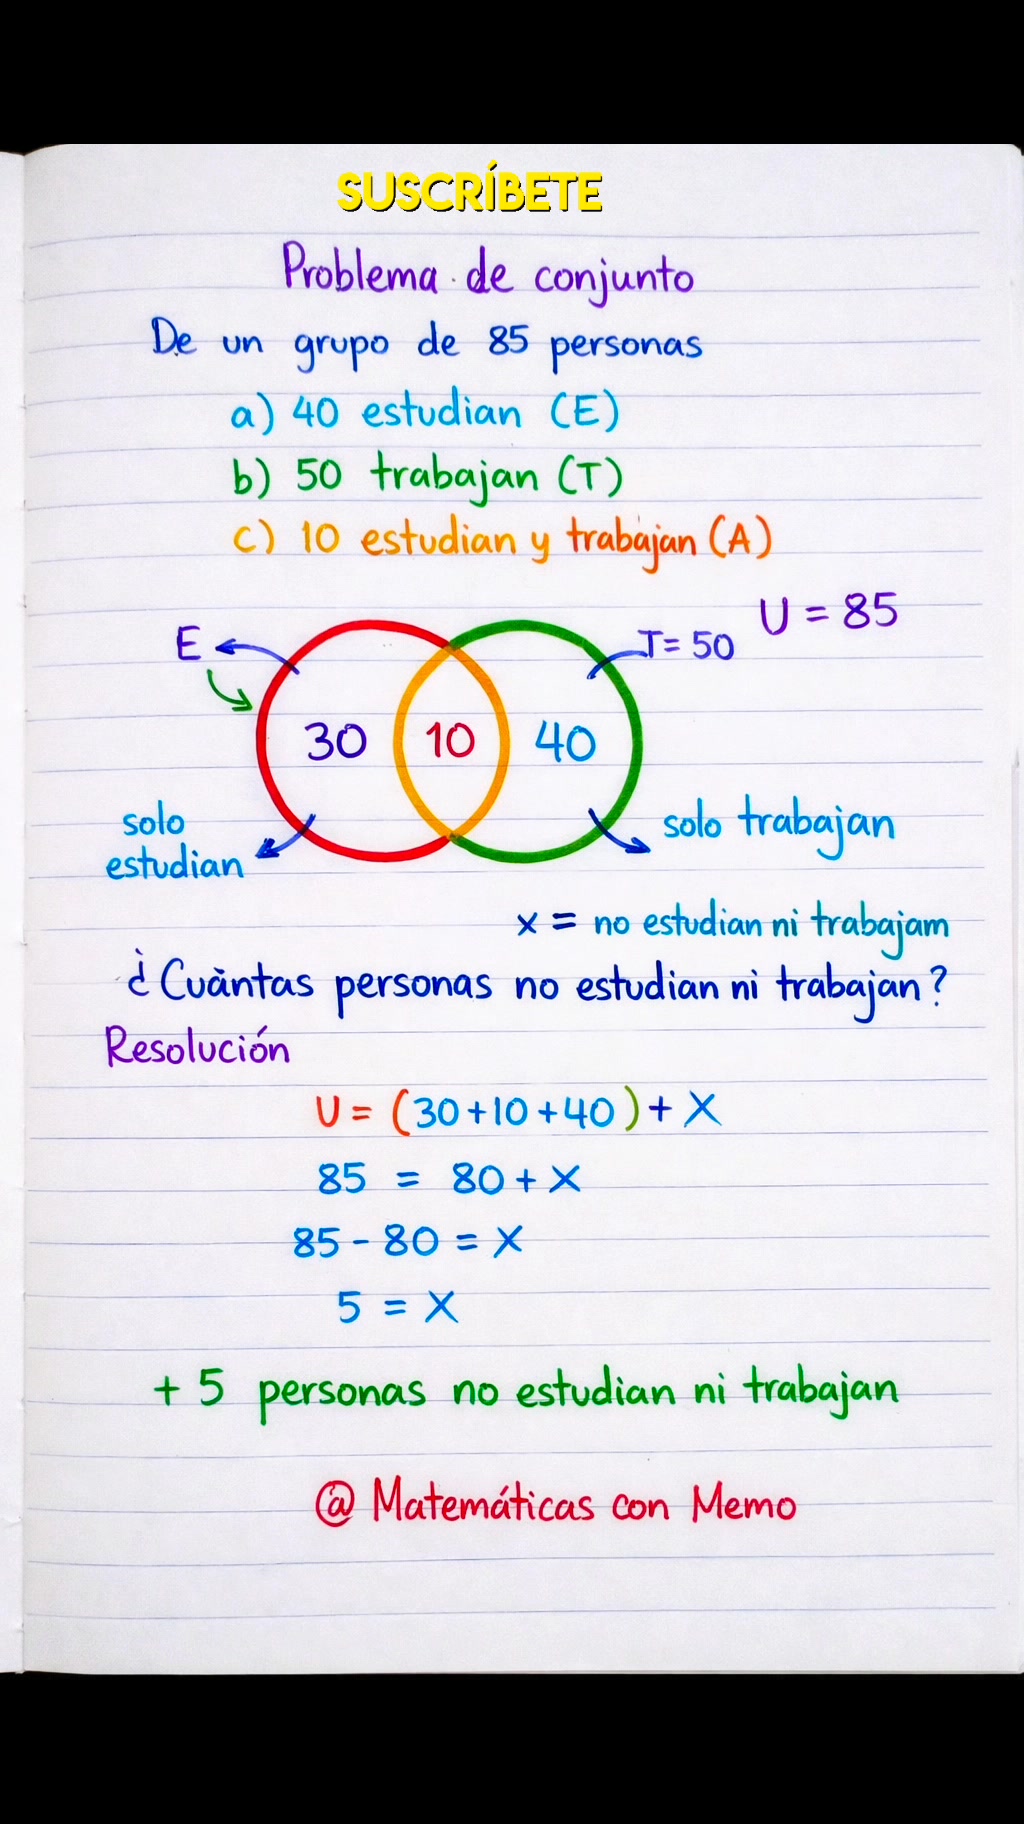 SUSCRÍBETE
Problema de conjunto
De un grupo de 85 personas
a) 40 estudian (E)
b) 50 trabajan (T)
c) 10 estudian y trabajan (A)
U = 85
E
T= 50
30 10 40
solo estudian
solo trabajan
x = no estudian ni trabajam
¿Cuántas personas no estudian ni trabajan?
Resolución
U = (30+10+40) + X
85 = 80 + X
85 - 80 = X
5 = X
+ 5 personas no estudian ni trabajan
@ Matemáticas con Memo